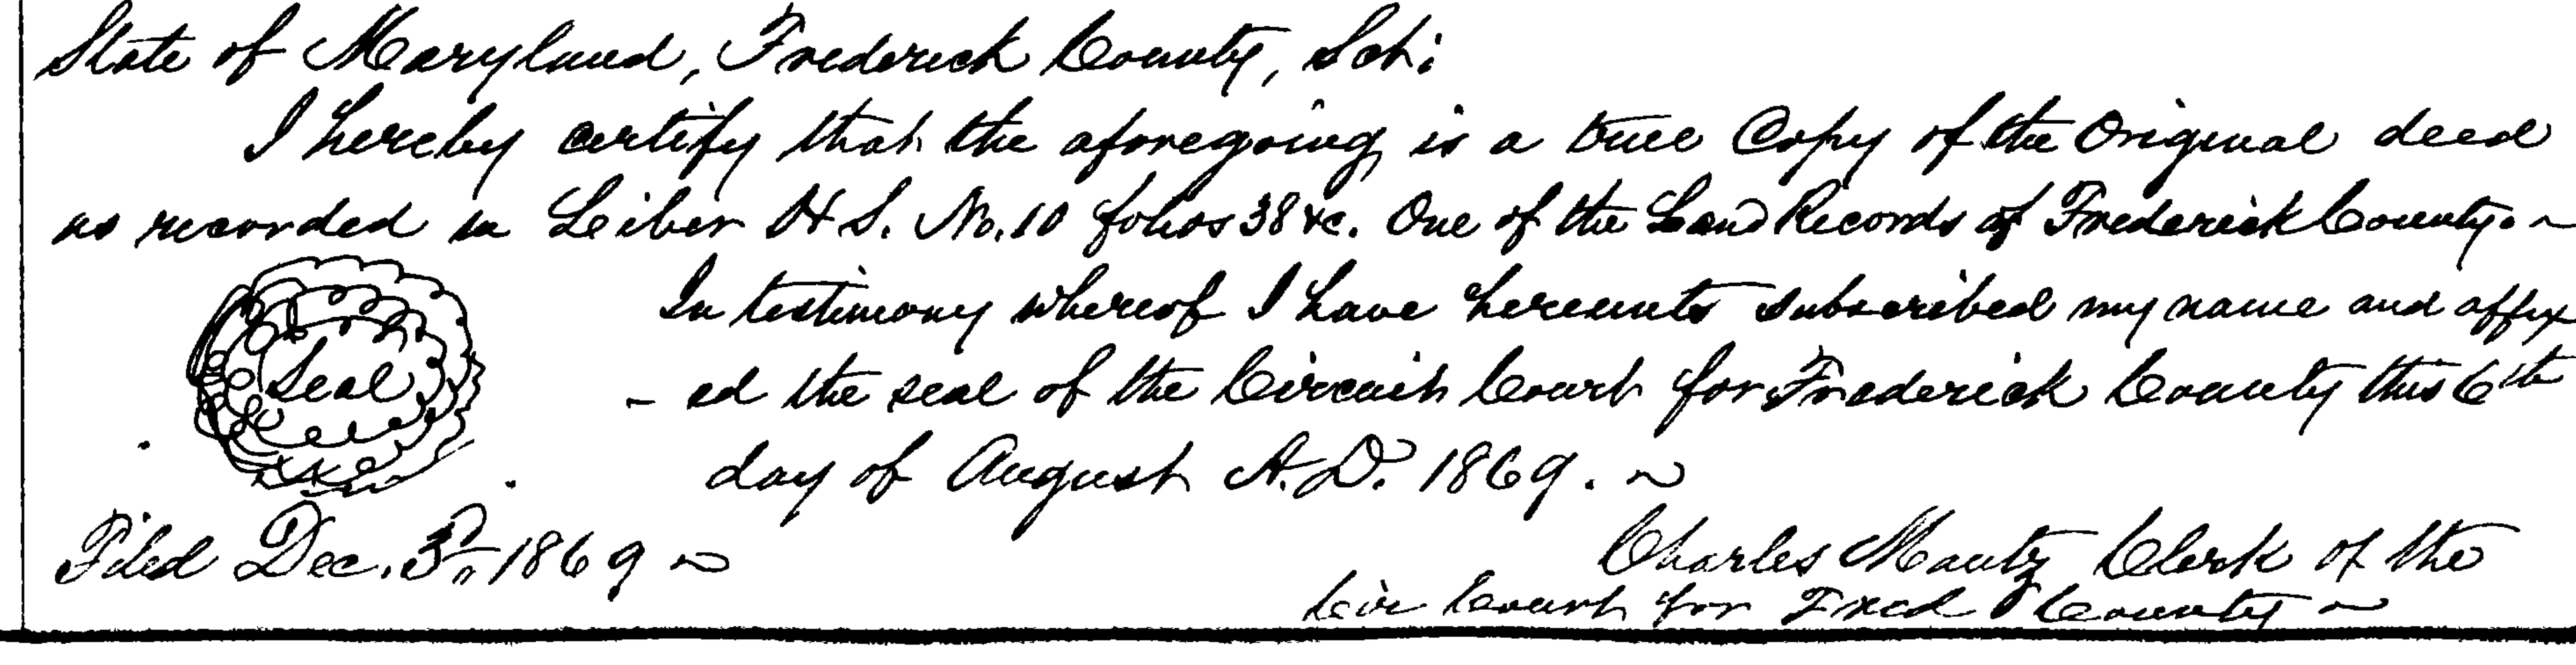 State of Maryland, Frederick County, Sct;
I hereby certify that the aforegoing is a true Copy of the Original deed
as recorded in Leiber H S. No. 10 folios 38 &c. One of the Land Records of Frederick County. ~
In testimony whereof I have hereunto subscribed my name and affix
Seal
- ed the seal of the Circuit Court for Frederick County this 6th
day of August A.D. 1869. ~
Filed Dec. 3" 1869 ~
Charles Mantz Clerk of the
Cir Court for Fred County ~